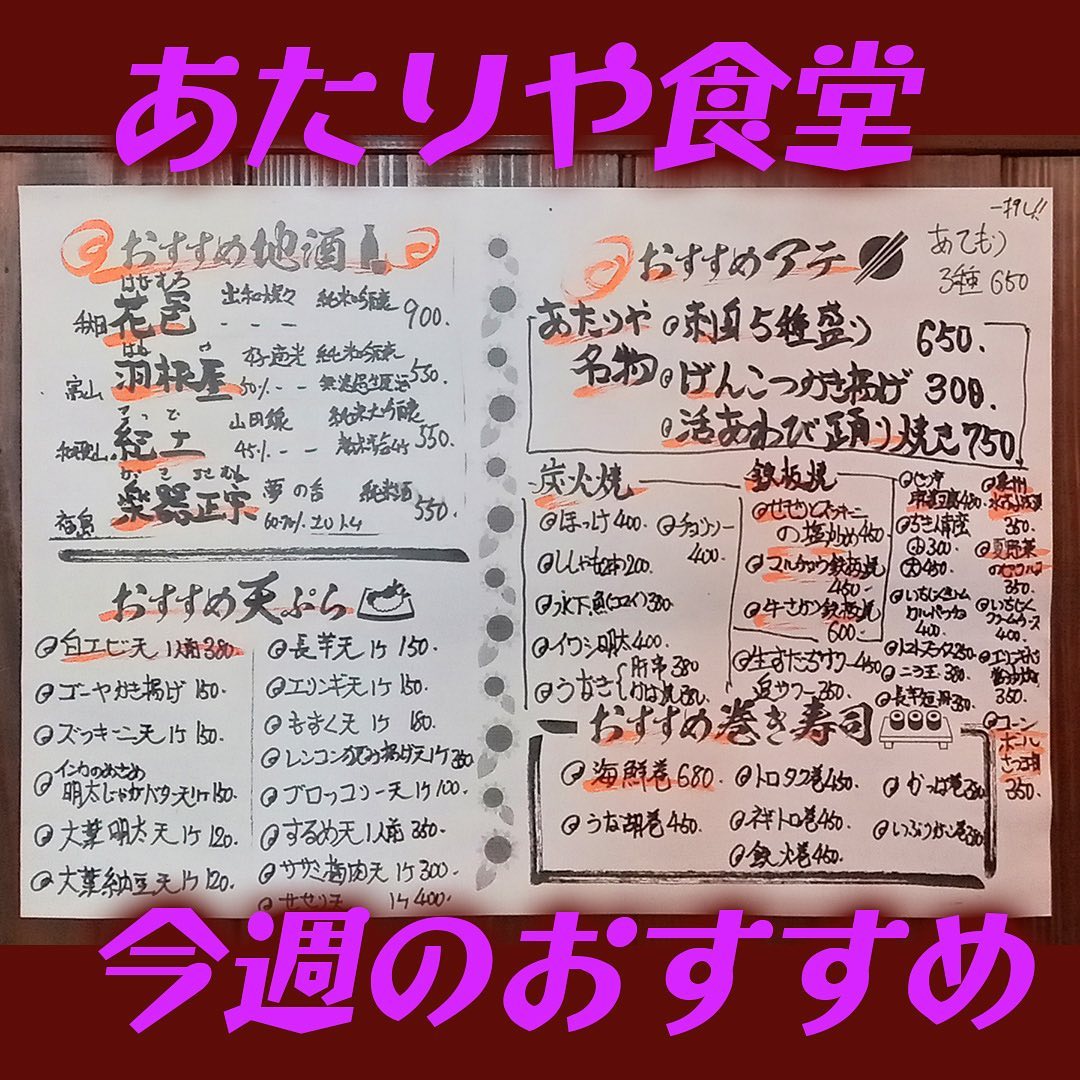 あたりや食堂
おすすめ地酒
はなむら
秋田 花邑 純米吟醸 900.
はね
富山 羽根屋 50% 純米吟醸 無濾過生原酒 550.
和歌山 紀土 山田錦 45% 純米大吟醸 550.
福島 楽器正宗 夢の香 60-70% 純米酒 550.
おすすめ天ぷら
白エビ天 1人前 380
ゴーヤかき揚げ 150.
ズッキーニ天 1ケ 150.
インカのめざめ
明太じゃがバター天 1ケ 150.
大葉明太天 1ケ 120.
大葉納豆天 1ケ 120.
長芋天 1ケ 150.
エリンギ天 1ケ 150.
もずく天 1ケ 180.
レンコン挟み揚げ天 1ケ 350
ブロッコリー天 1ケ 100.
するめ天 1人前 350.
ササミ梅肉天 1ケ 300
1ケ 400.
一押し!!
おすすめアテ
あてもり
3種 650
あたりや
名物
刺身5種盛り 650.
げんこつかき揚げ 300.
活あわび踊り焼き 750.
炭火焼
ほっけ 400.
チョリソー
400.
ししゃも 200.
氷下魚(コマイ) 380.
イワシ明太 400.
うなぎ 肝串 380
鉄板焼
せせりとズッキーニ
の塩炒め 450.
マルチョウ鉄板焼
450.
牛サガリ鉄板焼
600.
生すだちサワー 450
追サワー 250.
300.
450.
いちじく
400.
トマトスライス 250.
ニラ玉 380.
長芋短冊 350
泉州
水なす
350.
夏野菜
のピクルス
350.
いちじく
クリームチーズ
400.
350
コーン
ボール
さつま揚
350.
おすすめ巻き寿司
海鮮巻 680.
トロタク巻 450.
かっぱ巻
うな胡巻 450.
ネギトロ巻 450.
いぶりガッコ巻
鉄火巻 450.
今週のおすすめ